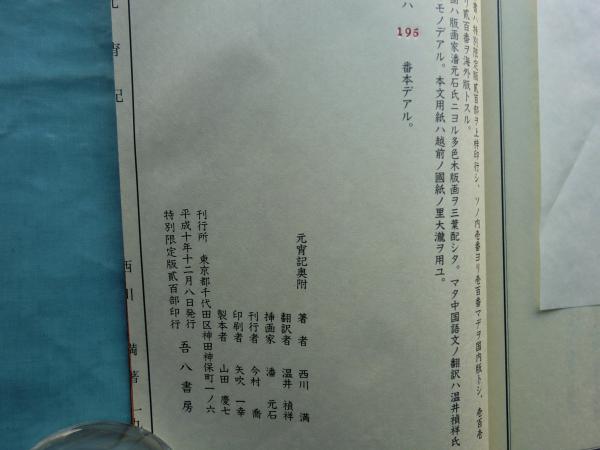 書ハ特別限定版貳百部ヲ上梓印行シ、ソノ内壱番ヨリ壱百番マデヲ国内版トシ、壱百壱
リ貳百番ヲ海外版トスル。
画ハ版画家潘元石氏ニヨル多色木版画ヲ三葉配シタ。マタ中国語文ノ翻訳ハ温井禎祥氏
モノデアル。本文用紙ハ越前ノ國紙ノ里大瀧ヲ用ユ。
ハ 195 番本デアル。
元宵記奥附
著者 西川 満
翻訳者 温井 禎祥
挿画家 潘 元石
刊行者 今村 喬
印刷者 矢吹 一幸
製本者 山田 慶七
刊行所 東京都千代田区神田神保町一ノ六
吾八書房
平成十年十二月八日発行
特別限定版貳百部印行
元宵記
西川 満著